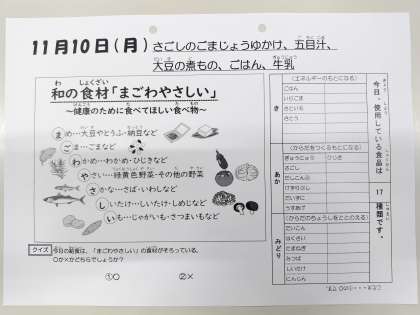 11月10日(月)
さごしのごまじょうゆかけ、五目汁、
大豆の煮もの、ごはん、牛乳
和の食材「まごわやさしい」
～健康のために食べてほしい食べ物～
ま め…大豆やとうふ・納豆など
ご ま…ごまなど
わ かめ…わかめ・ひじきなど
や さい…緑黄色野菜・その他の野菜
さ かな…さば・いわしなど
し いたけ…しいたけ・しめじなど
い も…じゃがいも・さつまいもなど
クイズ
今月の給食は、「まごわやさしい」の食材がそろっている。
○か×かどちらでしょうか?
①○ ②×
き
(エネルギーのもとになる)
ごはん
さといも
さとう
あか
(からだをつくるもとになる)
ぎゅうにゅう ひじき
さごし
だいず
みどり
(からだのちょうしをととのえる)
だいこん
はくさい
たまねぎ
みつば
しいたけ
にんじん
今日、使用している食品は
17
種類です。